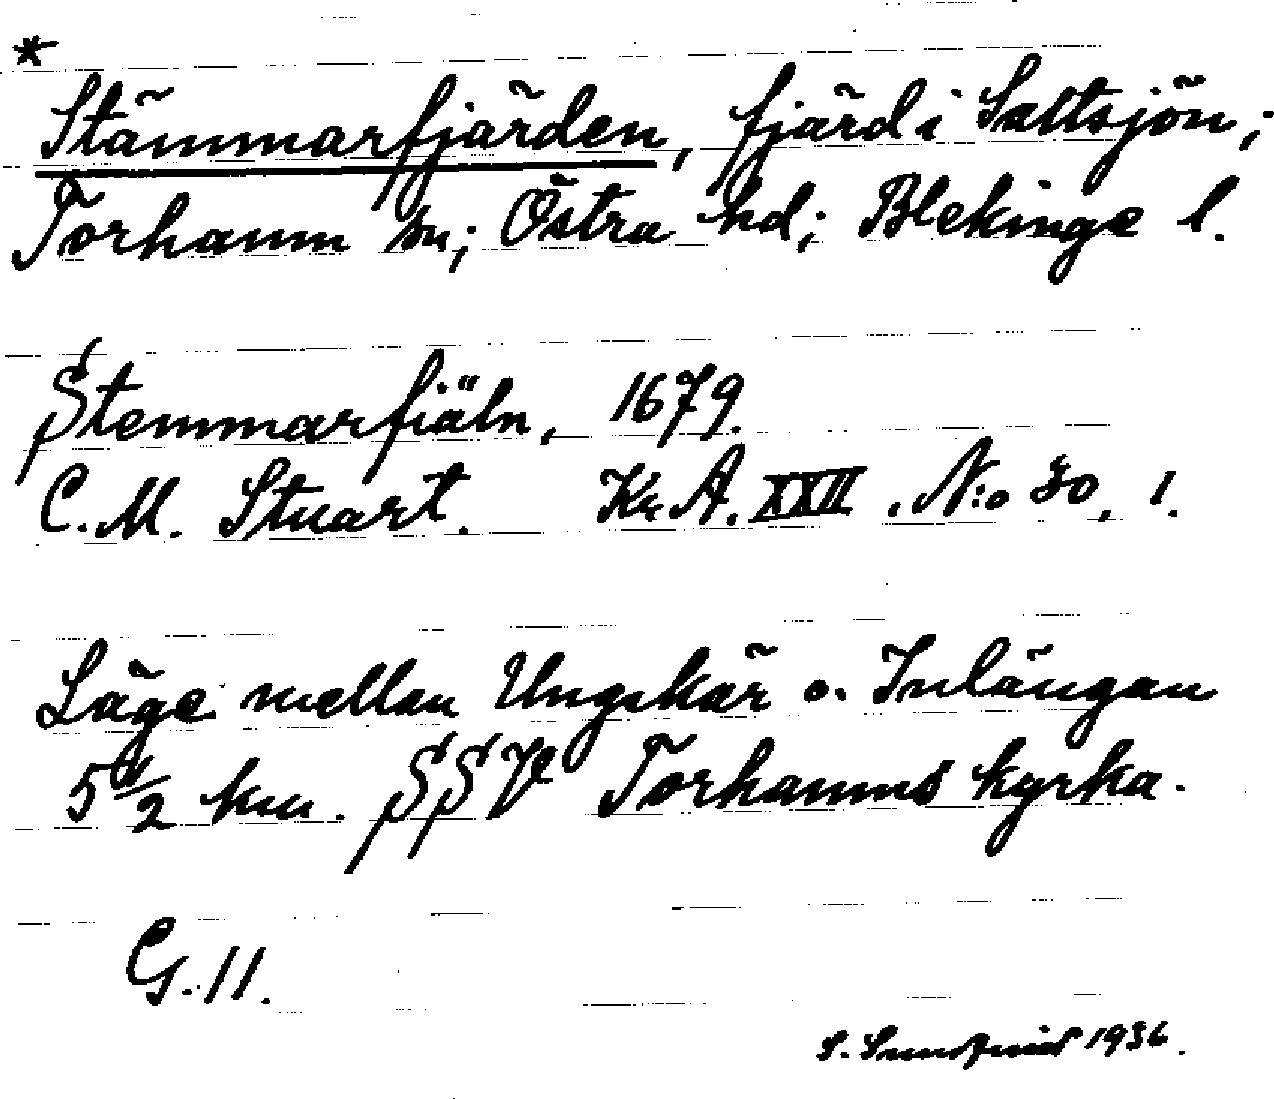 *
Stämmarfjärden, fjärd i Saltsjön;
Torhamn sn; Östra hd; Blekinge l.
Stemmarfiäln, 1679.
C. M. Stuart. Kr. A. XXII. N:o 30, 1.
Läge mellan Ungskär o. Inlängan
5 1/2 km. SSV Torhamns kyrka.
G. 11.
S. Sundquist 1936.